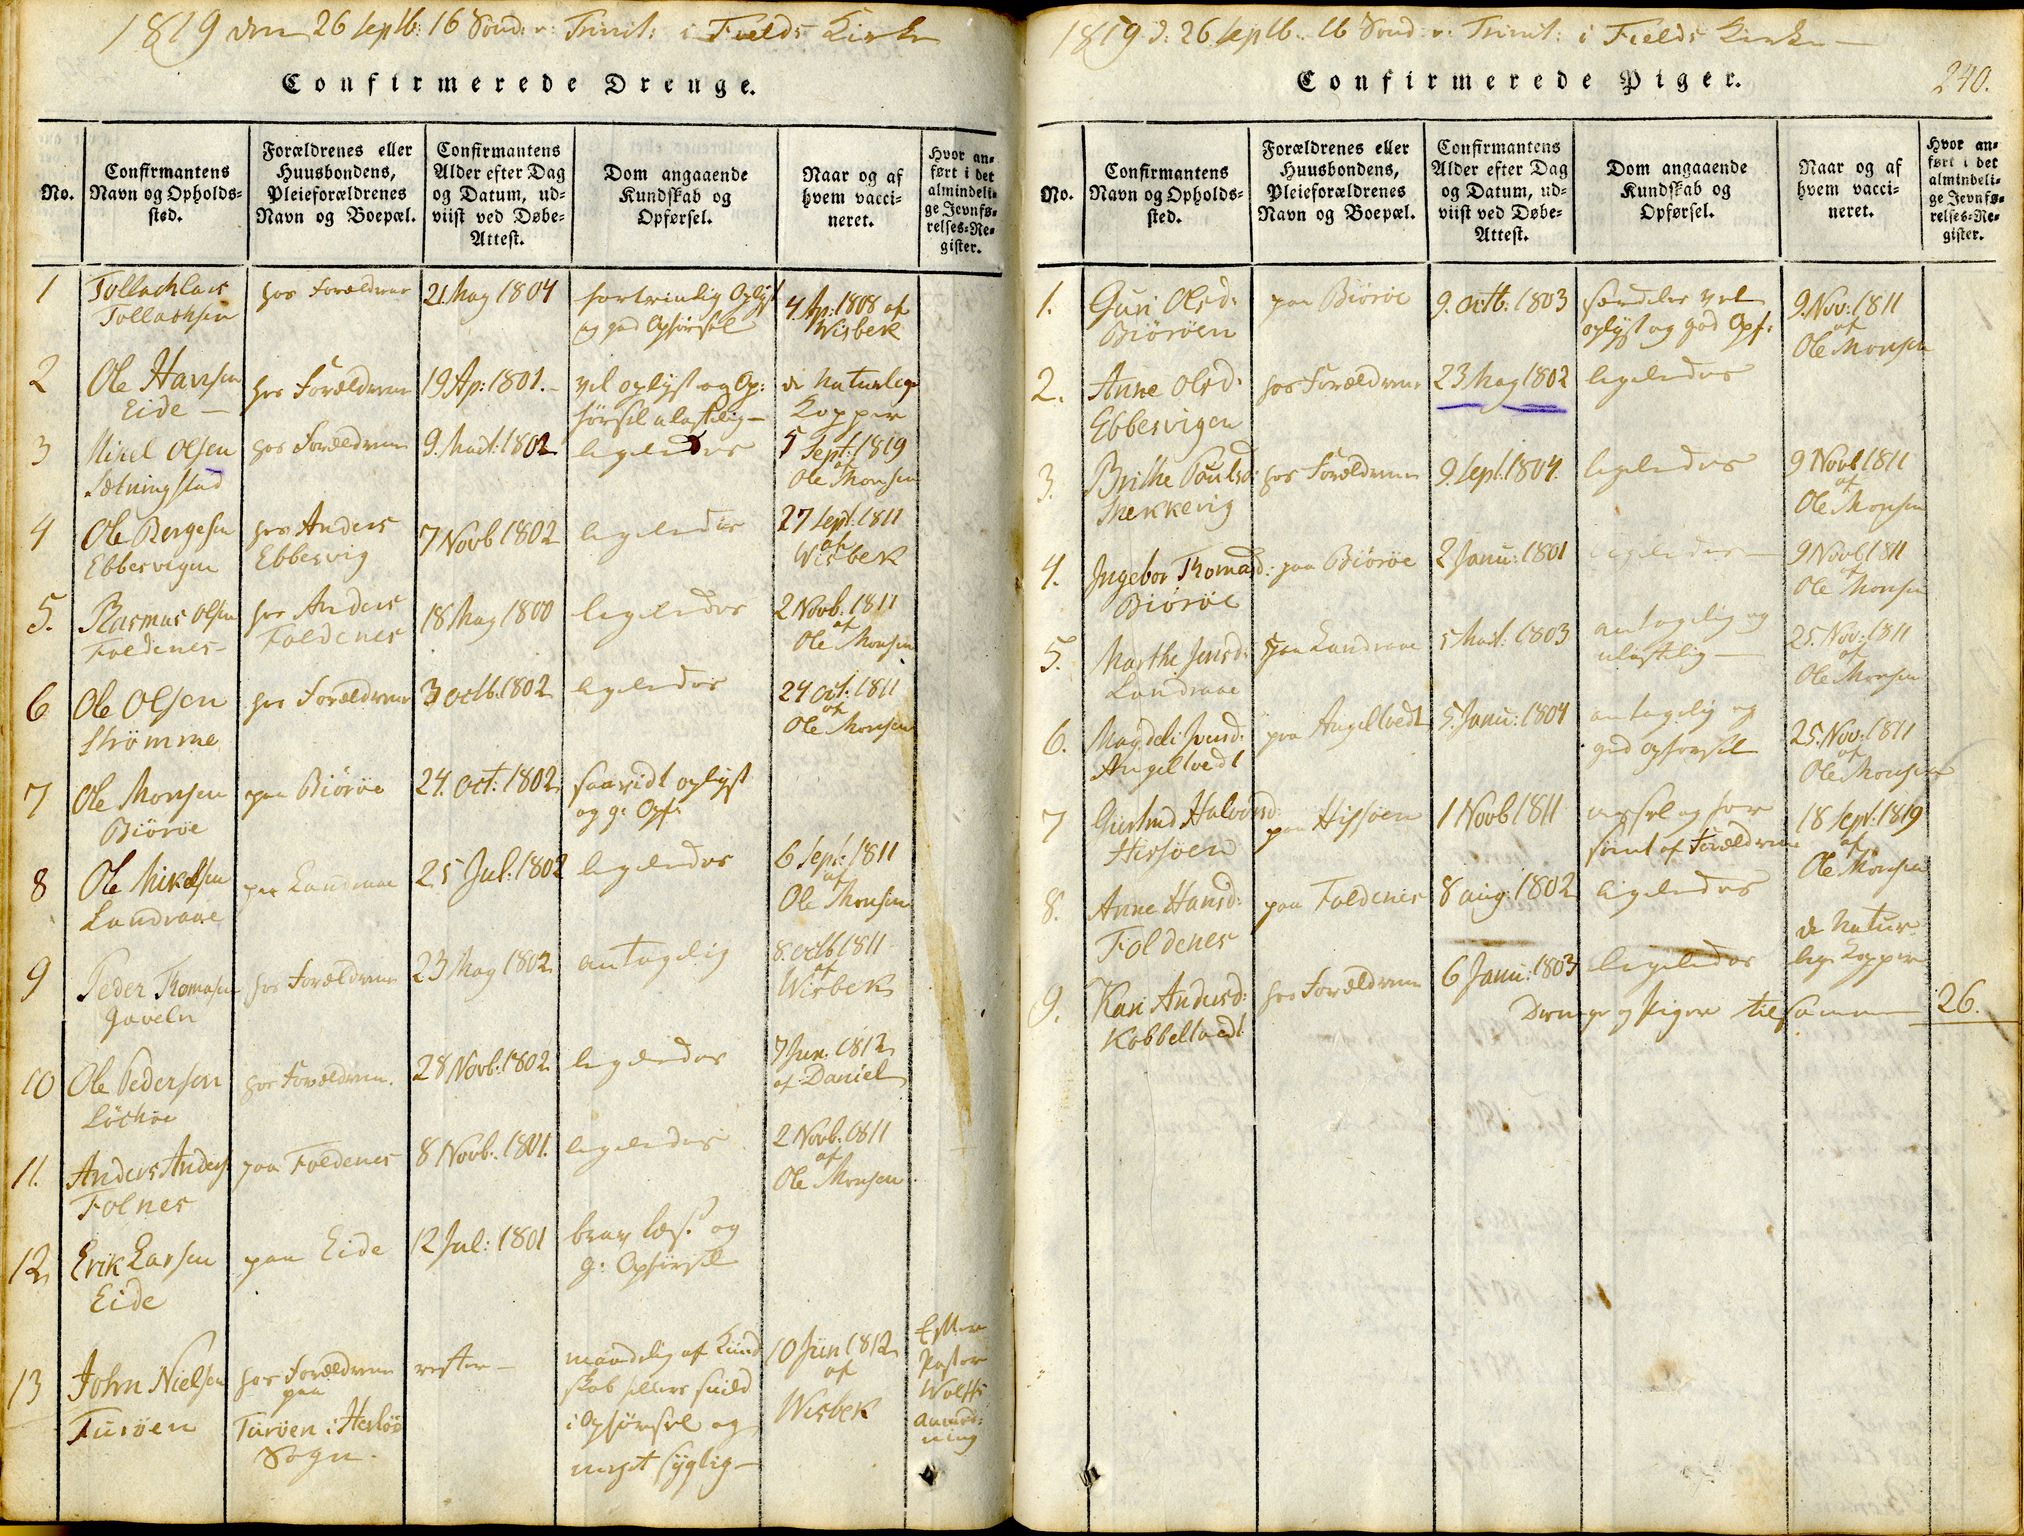 1819 den 26 Septb: 16 Sønd: v: Trinit: i Fields Kirke
Confirmerede Drenge.
No.
Confirmantens
Navn og Opholds-
sted.
Forældrenes eller
Huusbondens,
Pleieforældrenes
Navn og Boepæl.
Confirmantens
Alder efter Dag
og Datum, ud-
viist ved Døbe-
Attest.
Dom angaaende
Kundskab og
Opførsel.
Naar og af
hvem vacci-
neret.
Hvor an-
ført i det
almindeli-
ge Jevnfø-
relses-Re-
gister.
1
Tollachsen
hos Forældrene
21 May 1804
fortrinlig Oplyst
og god Opførsel
4 Ap: 1808 af
Wisbek
2
Ole Hansen
Eide
hos Forældrene
19 Ap: 1801.
vel oplyst og Op:
førsel ulastelig
de naturlige
Kopper
3
Mikel Olsen
hos Forældrene
9. Mart: 1802
ligeledes
5 Sept: 1819
af
Ole Monsen
4
Ole Bergesen
Ebbesvigen
hos Anders
Ebbesvig
7 Novb 1802
ligeledes
27 Sept: 1811
af
Wisbek
5.
Rasmus Olsen
Foldenes
hos Anders
Foldenes
18 May 1800
ligeledes
2 Novb: 1811
af
Ole Monsen
6
Ole Olsen
Strømme
hos Forældrene
3 octb: 1802
ligeledes
24 oct: 1811
af
Ole Monsen
7
Ole Monsen
Biørøe
paa Biørøe
24. oct: 1802
saavidt oplyst
og g: Opf:
8
Ole Mikelsen
Landraae
paa Landraae
25 Jul: 1802
ligeledes
6 Sept: 1811
af
Ole Monsen
9
Peder Thomasen
Gaveln
hos Forældrene
23 May 1802
antagelig
8. octb 1811
af
Wisbek
10
Ole Pedersen
hos Forældrene.
28 Novb: 1802
ligeledes
7 Jun: 1812
af Daniel
11.
Anders Anders:
Folnes
paa Foldenes
8 Novb: 1801.
ligeledes
2 Novb: 1811
af
Ole Monsen
12
Erik Larsen
Eide
paa Eide
12 Jul: 1801
brav læs: og
g: Opførsel
13
John Nielsen
Turøen
hos Forældrene
paa
Turøen i Herløe
Sogn.
maadelig af Kund
skab
i Opførsel og
meget syglig
10 Jun 1812
af
Wisbek
Efter
Pastor
Wolffs
anmed:
ning
1819 d: 26 Septb. 16 Sønd: v: Trinit: i Fields Kirke
Confirmerede Piger.
240.
No.
Confirmantens
Navn og Opholds-
sted.
Forældrenes eller
Huusbondens,
Pleieforældrenes
Navn og Boepæl.
Confirmantens
Alder efter Dag
og Datum, ud-
viist ved Døbe-
Attest.
Dom angaaende
Kundskab og
Opførsel.
Naar og af
hvem vacci-
neret.
Hvor an-
ført i det
almindeli-
ge Jevnfø-
relses-Re-
gister.
1.
Guri Olsd:
Biørøen
paa Biørøe
9. octb: 1803
særdeles vel
oplyst og god Opf:
9. Nov: 1811
af
Ole Monsen
2.
Anne Olsd:
Ebbesvigen
hos Forældrene
23 May 1802
ligeledes
3.
Brithe Poulsd:
Snekkevig
hos Forældrene
9. Sept: 1804.
ligeledes
9 Novb 1811
af
Ole Monsen
4.
Ingebor Thomasd:
Biørøe
paa Biørøe
2 Janu: 1801
ligeledes
9 Novb 1811
af
Ole Monsen
5.
Marthe Jensd:
Landraae
paa Landraae
5 Mart: 1803
antagelig og
ulastelig
25. Nov: 1811
af
Ole Monsen
6.
Magdeli
Angeltvedt
paa Angeltvedt
5. Janu: 1804
antagelig og
god opførsel
25. Nov: 1811
af
Ole Monsen
7
Giertrud Halvorsd:
Hissøen
paa Hissøen
1 Novb 1811
ussel og for
sømt af Forældrene
18 Sept: 1819
af
Ole Monsen
8.
Anne Hansd:
Foldenes
paa Foldenes
8 aug: 1802
ligeledes
de natur
lige Kopper
9.
Kari Andersd:
Kobbeltvedt
hos Forældrene
6 Janu: 1803
ligeledes
Drenge og Piger tilsammen 26.